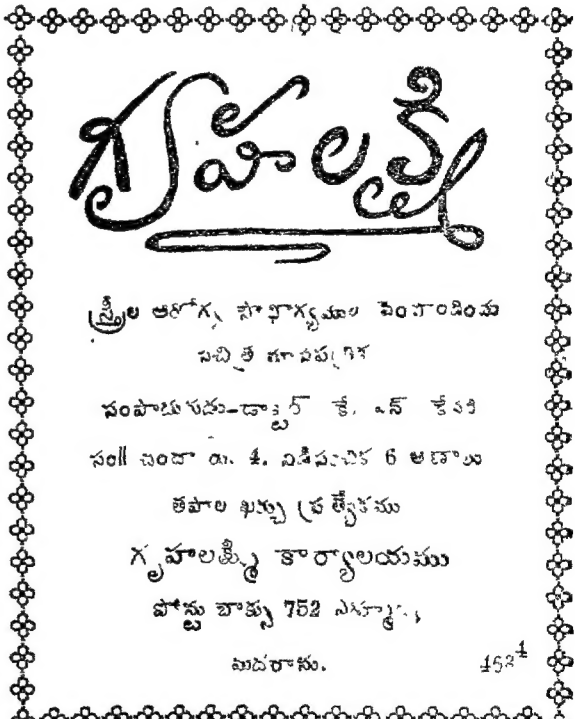 గృహలక్ష్మి
స్త్రీల ఆరోగ్య సౌభాగ్యముల పెంపొందించు
సచిత్ర మాసపత్రిక
సంపాదకుడు-డాక్టర్ కే. ఎన్ కేసరి
సం॥ చందా రు. 4. విడిసంచిక 6 అణాలు
తపాల ఖర్చు ప్రత్యేకము
గృహలక్ష్మీ కార్యాలయము
పోస్టు బాక్సు 752
మదరాసు.